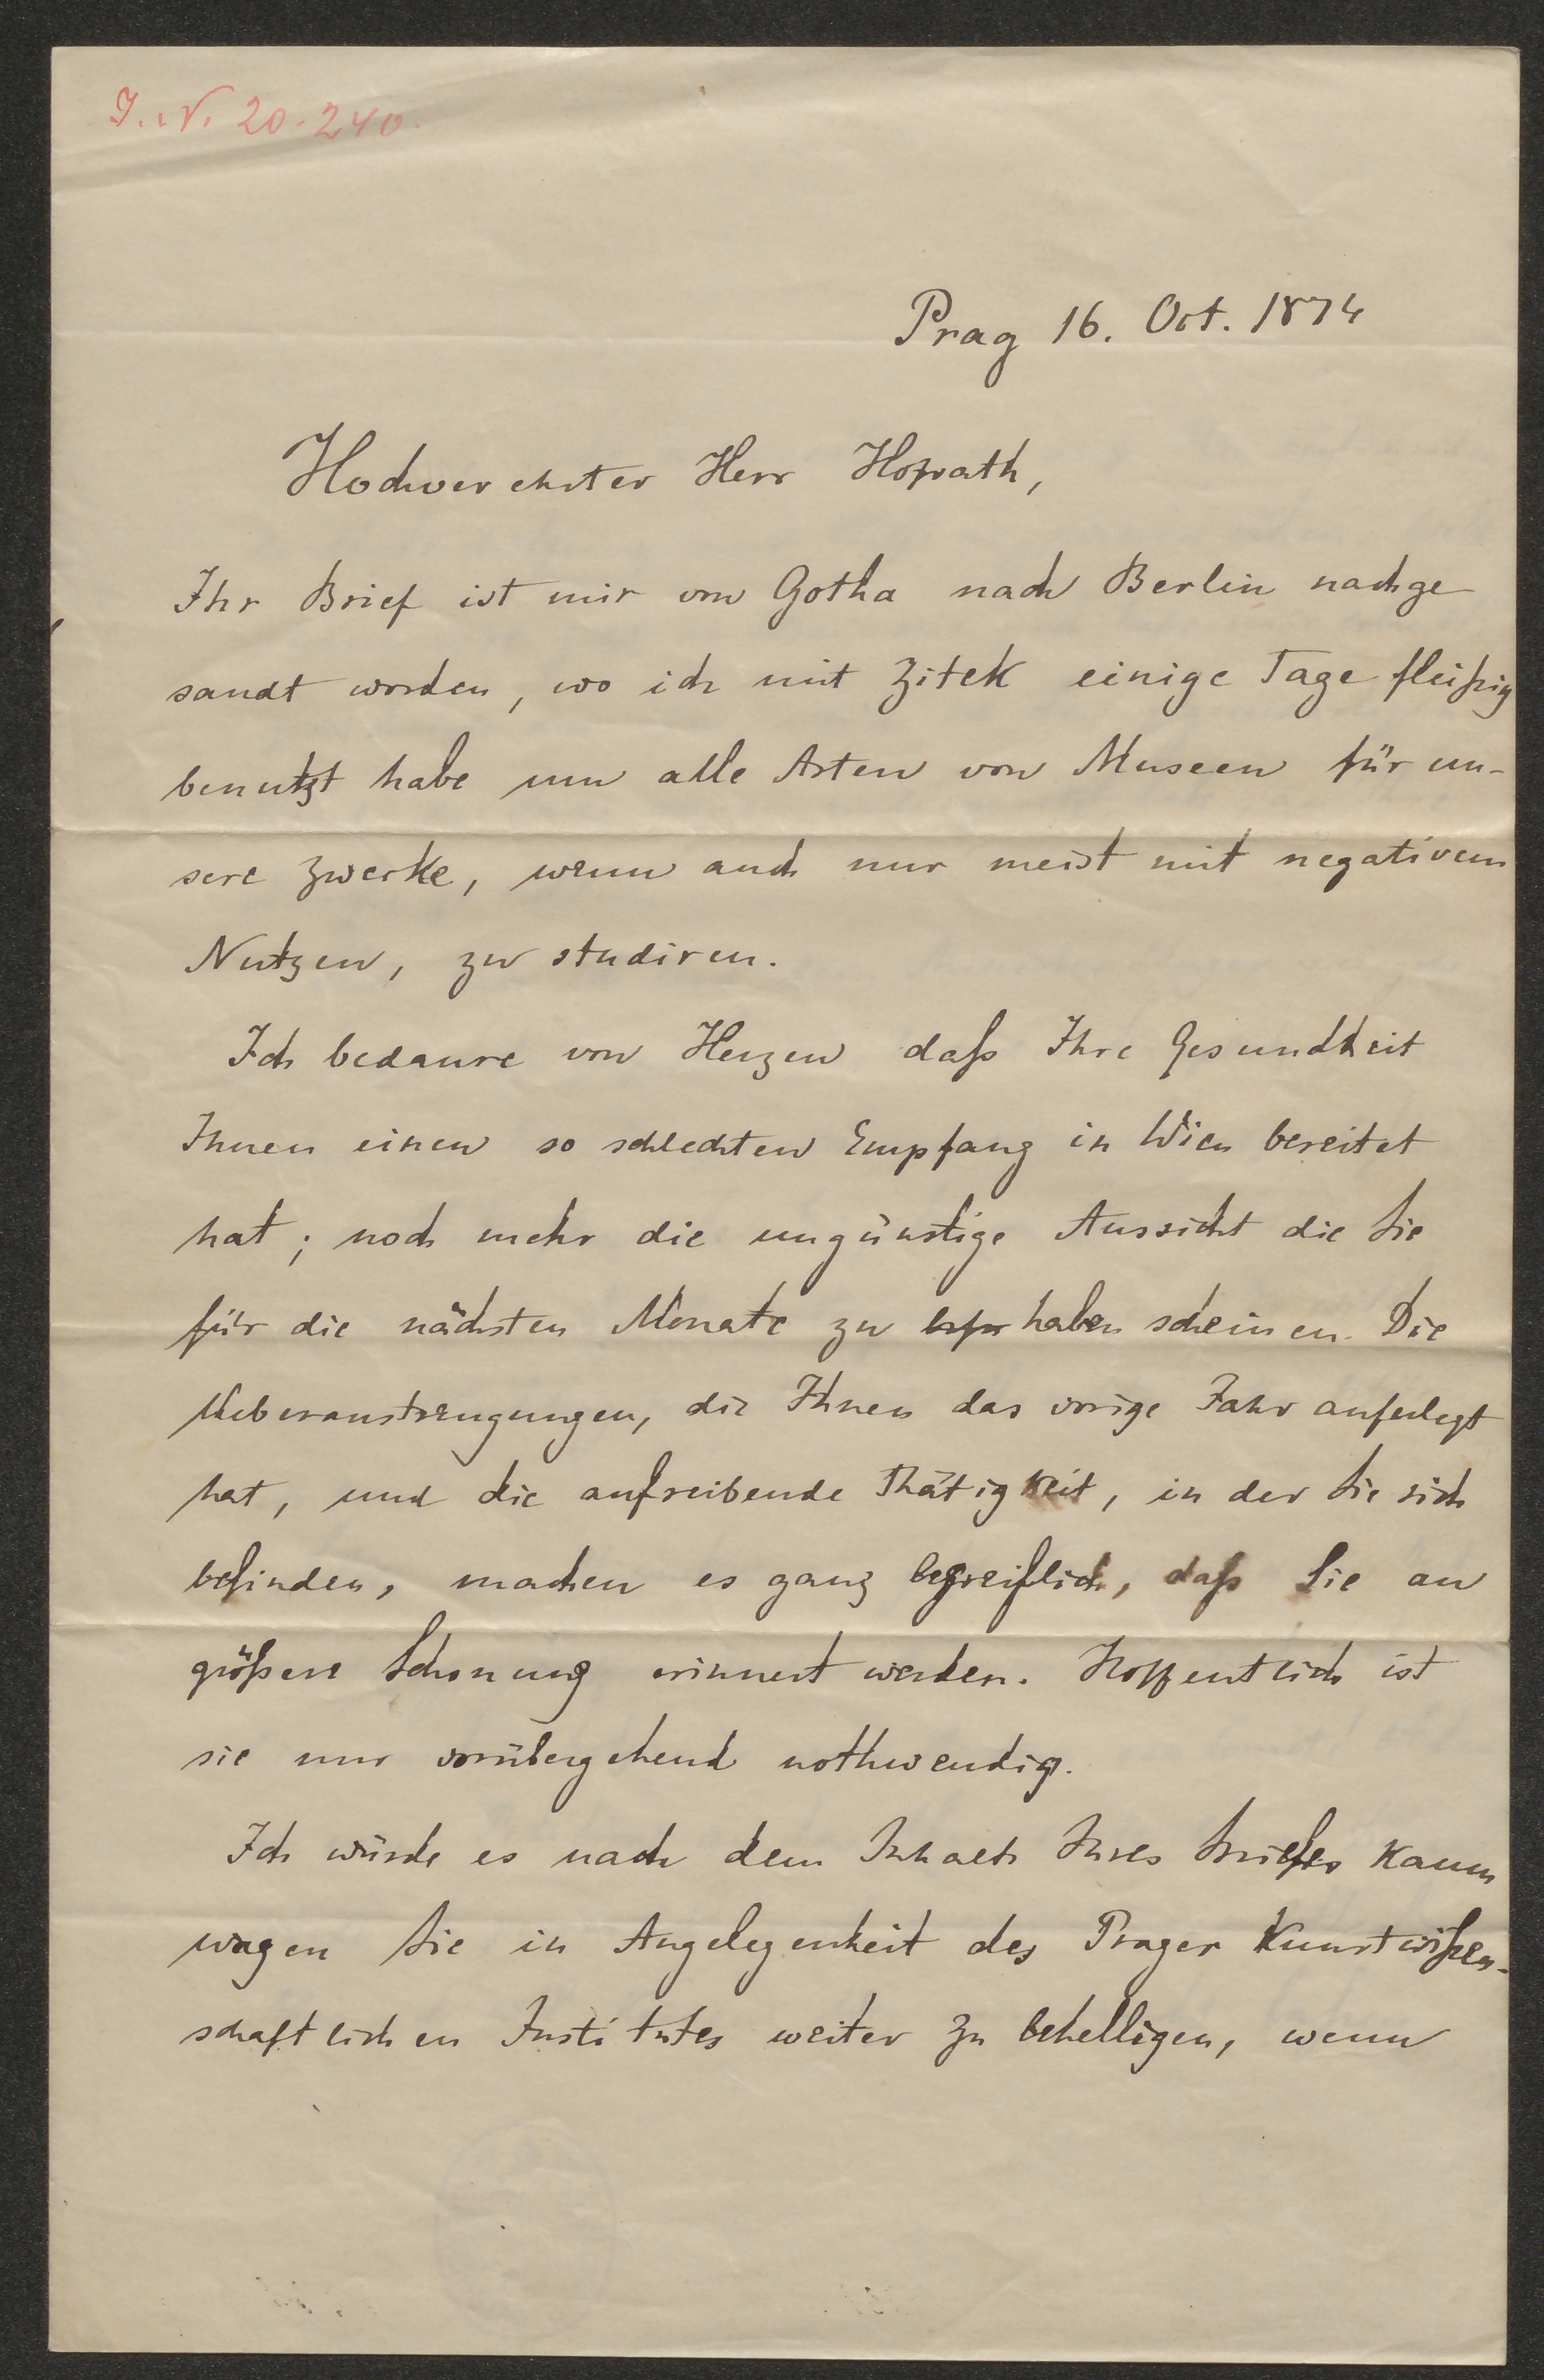 I.N. 20.240.
Prag 16. Oct. 1874
Hochverehrter Herr Hofrath,
Ihr Brief ist mir von Gotha nach Berlin nachge
sandt worden, wo ich mit Zitek einige Tage fleißig
benutzt habe um alle Arten von Museen für un-
sere Zwecke, wenn auch nur meist mit negativem
Nutzen, zu studiren.
Ich bedaure von Herzen daß Ihre Gesundheit
Ihnen einen so schlechten Empfang in Wien bereitet
hat; noch mehr die ungünstige Aussicht die Sie
für die nächsten Monate zu haben scheinen. Die
Ueberanstrengungen, die Ihnen das vorige Jahr auferlegt
hat, und die aufreibende Thätigkeit, in der Sie sich
befinden, machen es ganz begreiflich, daß Sie an
größere Schonung erinnert werden. Hoffentlich ist
sie nur vorübergehend nothwendig.
Ich würde es nach dem Inhalt Ihres Briefes kaum
wagen Sie in Angelegenheit des Prager Kunstwißen-
schaftlichen Institutes weiter zu behelligen, wenn